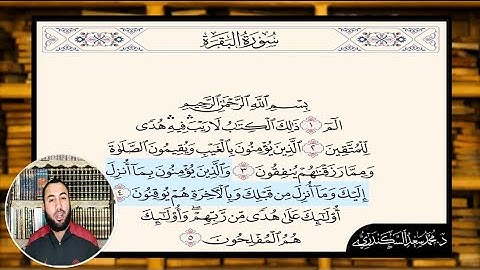 سُورَةُ البَقَرَةِ
بِسْمِ ٱللَّهِ ٱلرَّحْمَٰنِ ٱلرَّحِيمِ
الٓمٓ ١ ذَٰلِكَ ٱلْكِتَٰبُ لَا رَيْبَۛ فِيهِۛ هُدًى
لِّلْمُتَّقِينَ ٢ ٱلَّذِينَ يُؤْمِنُونَ بِٱلْغَيْبِ وَيُقِيمُونَ ٱلصَّلَوٰةَ
وَمِمَّا رَزَقْنَٰهُمْ يُنفِقُونَ ٣ وَٱلَّذِينَ يُؤْمِنُونَ بِمَآ أُنزِلَ
إِلَيْكَ وَمَآ أُنزِلَ مِن قَبْلِكَ وَبِٱلْءَاخِرَةِ هُمْ يُوقِنُونَ ٤
أُو۟لَٰٓئِكَ عَلَىٰ هُدًى مِّن رَّبِّهِمْۖ وَأُو۟لَٰٓئِكَ
هُمُ ٱلْمُفْلِحُونَ ٥
د. محمد سعد السكندري